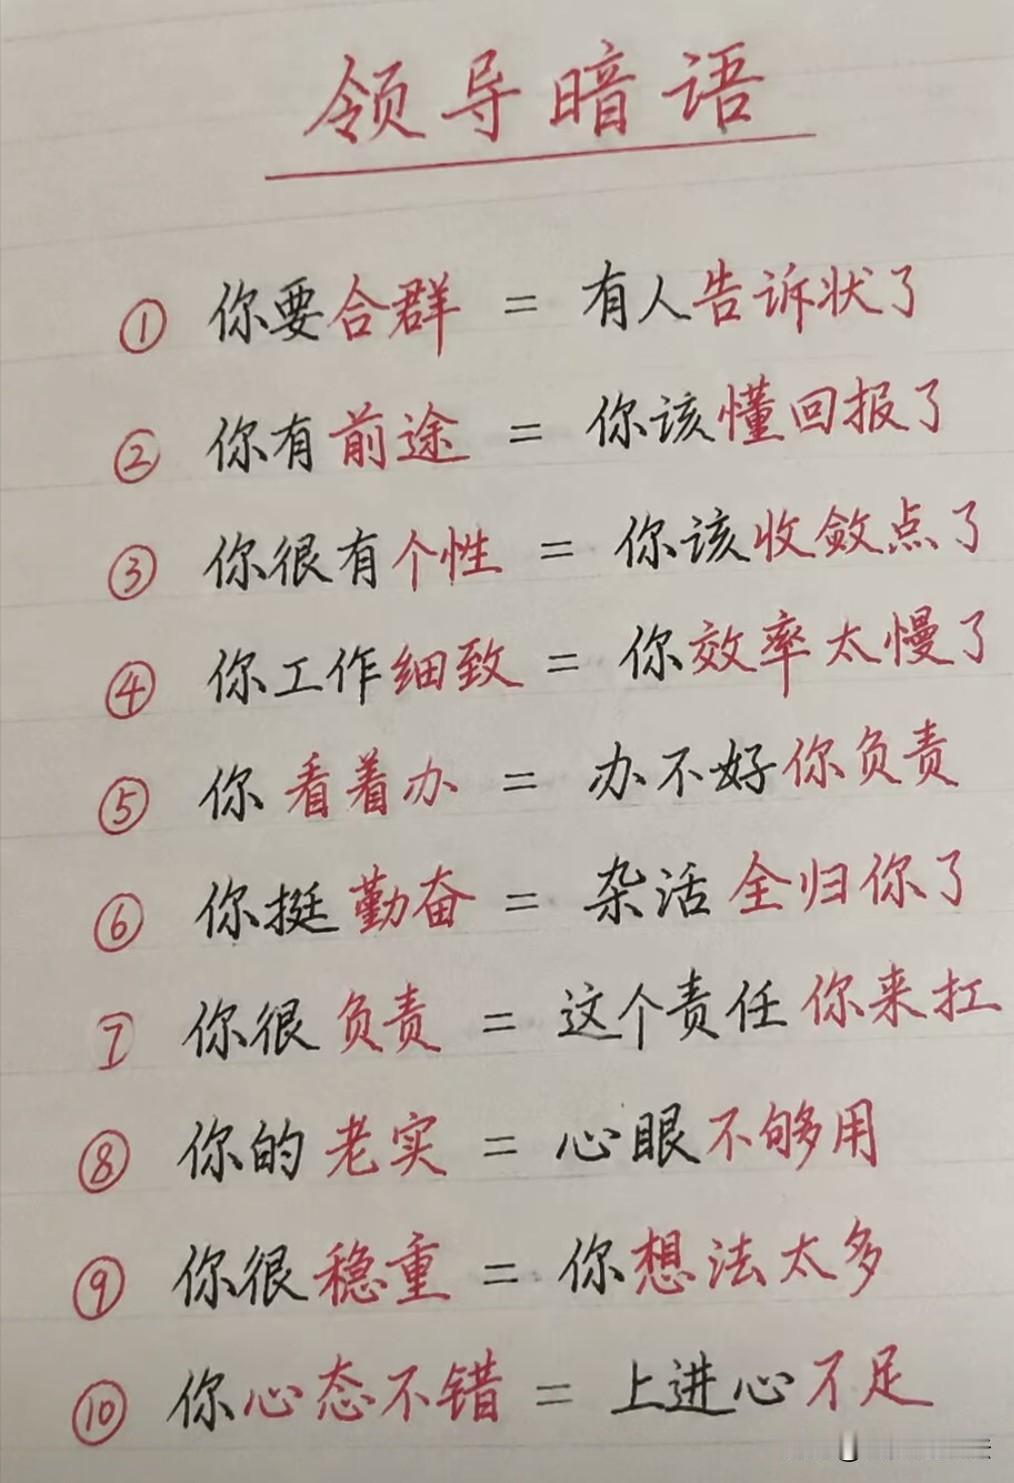 领导暗语
① 你要合群 = 有人告诉状了
② 你有前途 = 你该懂回报了
③ 你很有个性 = 你该收敛点了
④ 你工作细致 = 你效率太慢了
⑤ 你看着办 = 办不好你负责
⑥ 你挺勤奋 = 杂活全归你了
⑦ 你很负责 = 这个责任你来扛
⑧ 你的老实 = 心眼不够用
⑨ 你很稳重 = 你想法太多
⑩ 你心态不错 = 上进心不足